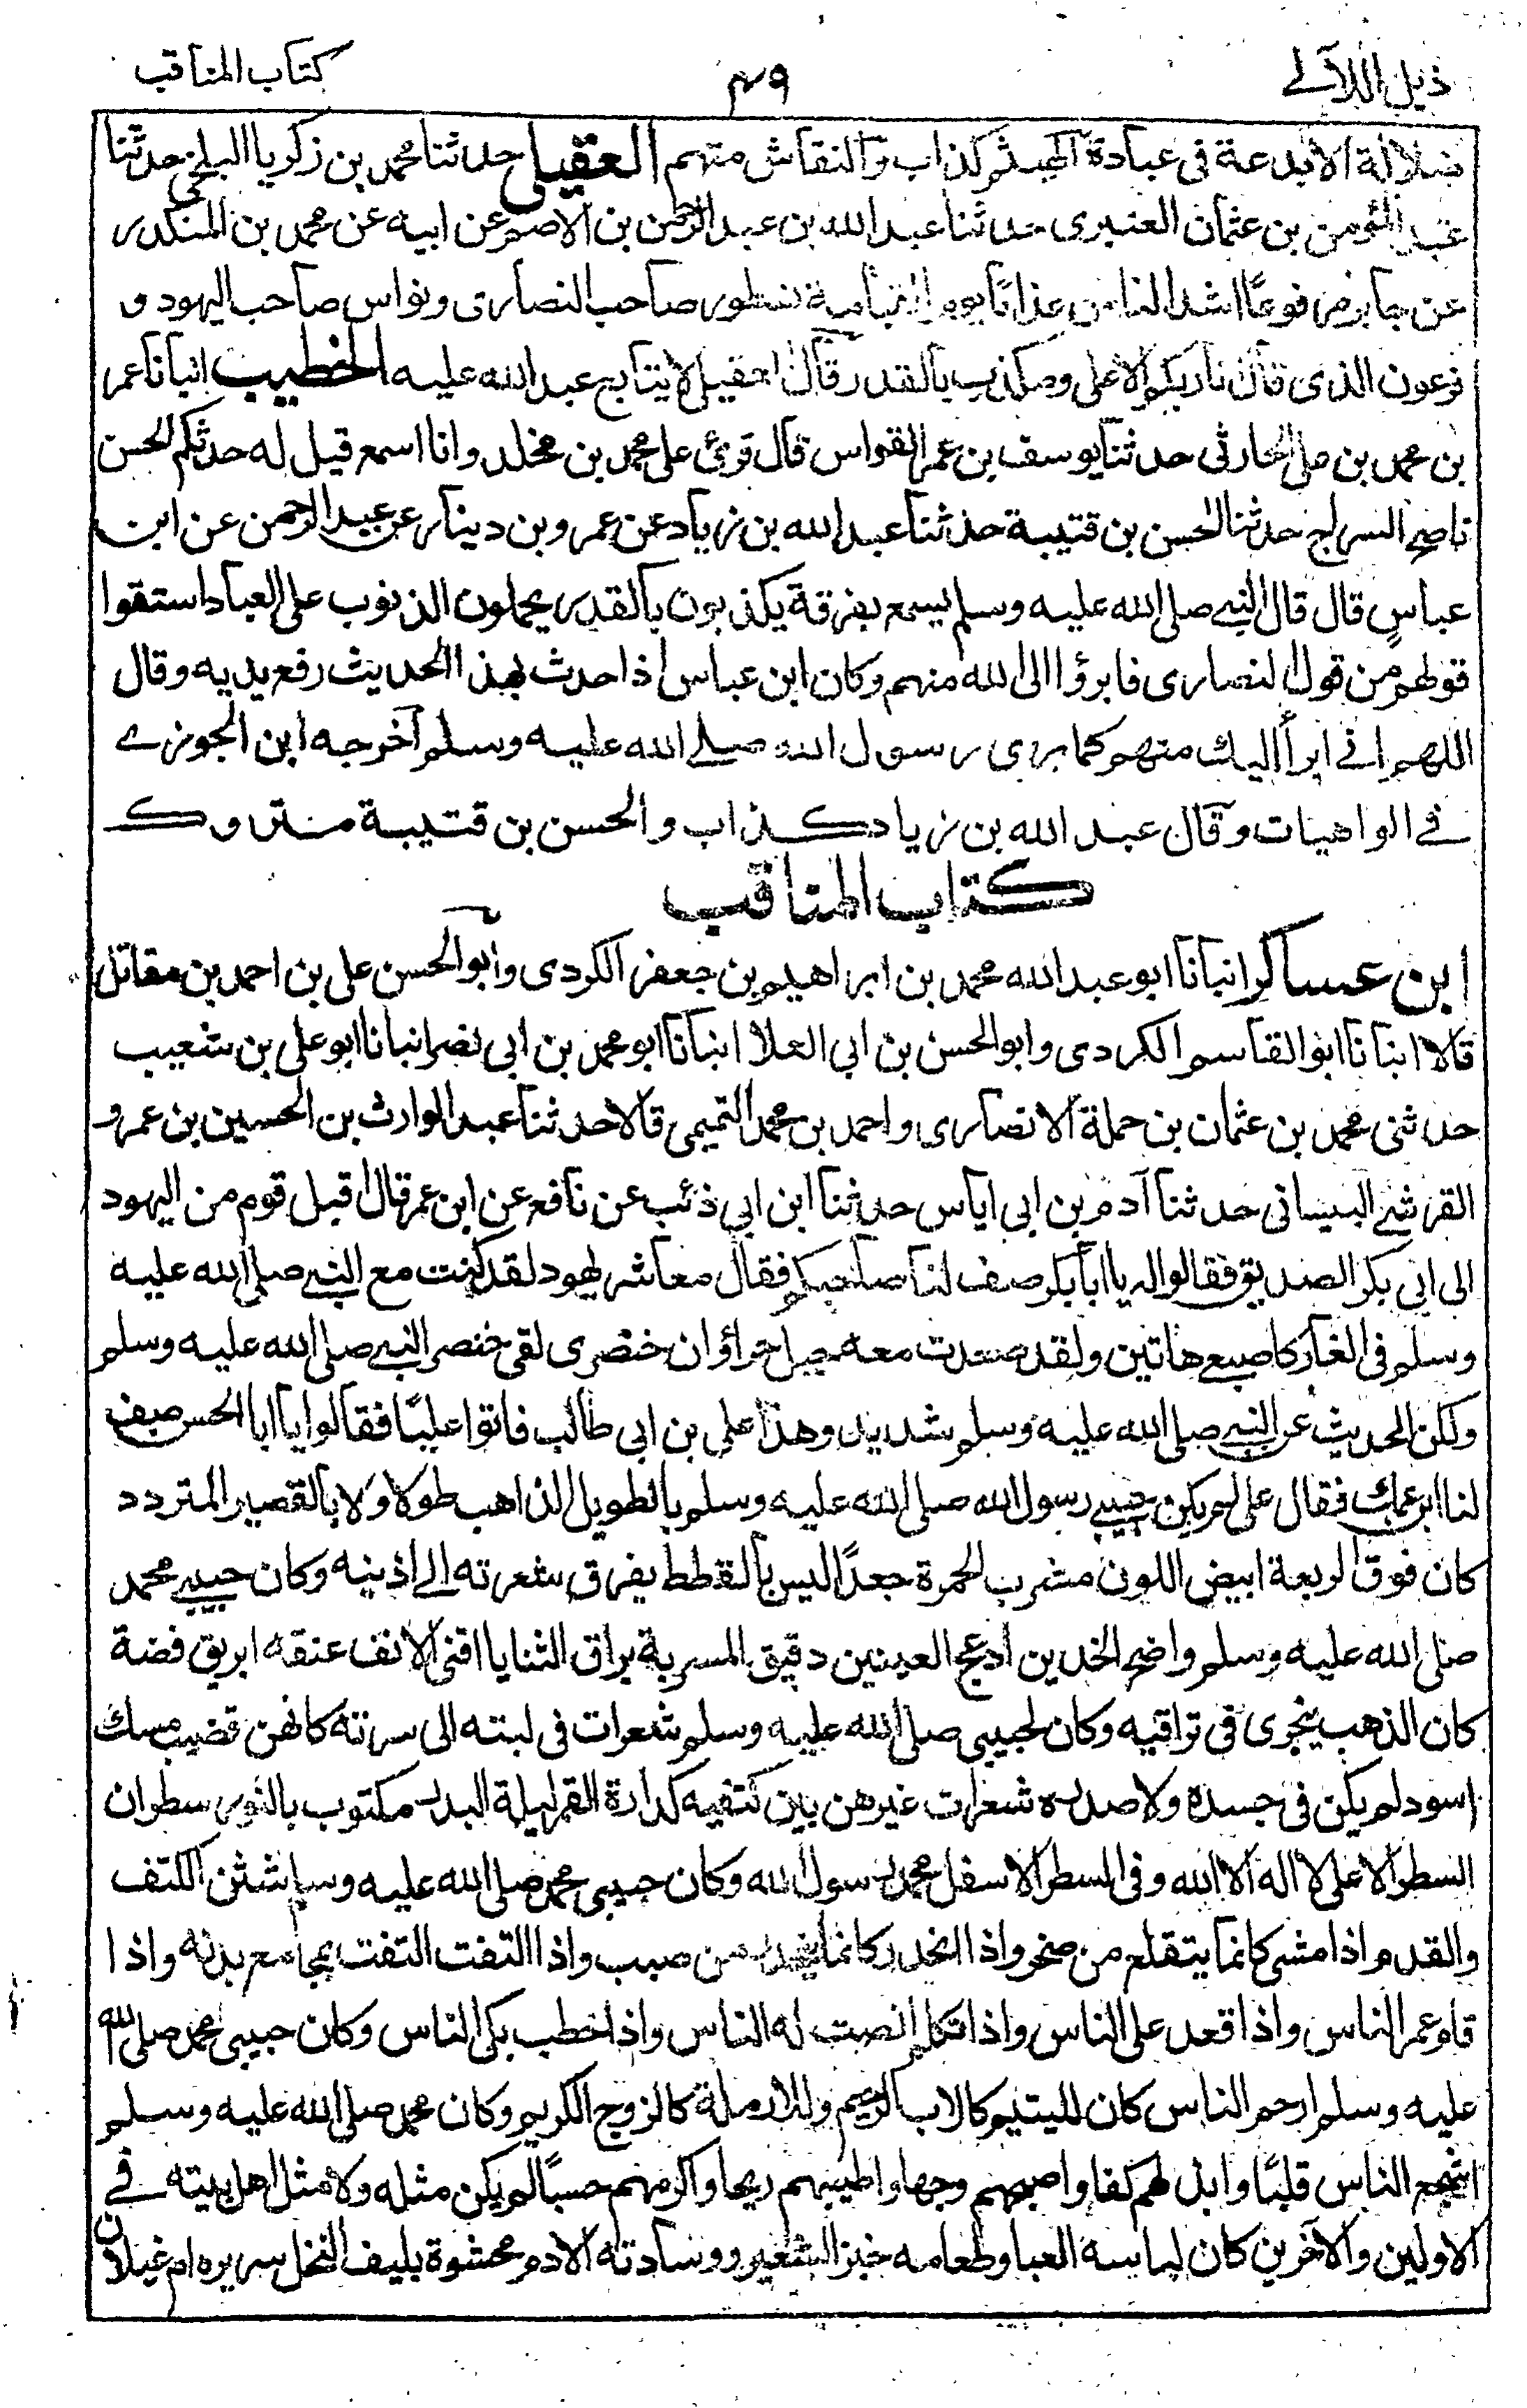 ذيل اللآلے
٤٩
كتاب المناقب
ضلالة الا بدعة فى عبادة كذاب والنقاش متهم العقيلى حدثنا محمد بن زكريا البلخى حدثنا
عبد المؤمن بن عثمان العنبرى حدثنا عبد الله بن عبد الرحمن بن الاصم عن ابيه عن محمد بن المنكدر
عن جابر مرفوعًا اشد الناس عذابًا يوم القيامة نسطور صاحب النصارى ونواس صاحب اليهود و
فرعون الذى قال انا ربكم الاعلى ومكذب بالقدر قال العقيلى لا يتابع عبد الله عليه الخطيب انبأنا عمر
بن محمد بن على الحارثى حدثنا يوسف بن عمر القواس قال قرئ على محمد بن مخلد وانا اسمع قيل له حدثكم الحسن
ناصح السراج حدثنا الحسن بن قتيبة حدثنا عبد الله بن زياد عن عمرو بن دينار عن عبد الرحمن عن ابن
عباس قال قال النبى صلى الله عليه وسلم يسمع بفرقة يكذبون بالقدر يحملون الذنوب على العباد استقوا
قولهم من قول النصارى فابرؤا الى الله منهم وكان ابن عباس اذا حدث بهذا الحديث رفع يديه وقال
اللهم انى ابرأ اليك منهم كما برى رسول الله صلے الله عليه وسلم اخرجه ابن الجوزے
فے الواهيات وقال عبد الله بن زياد كذاب والحسن بن قتيبة متروك
كتاب المناقب
ابن عساكر انبأنا ابو عبد الله محمد بن ابراهيم بن جعفر الكردى وابو الحسن على بن احمد بن مقاتل
قالا انبانا ابو القاسم الكردى وابو الحسن بن ابى العلا انبانا ابو محمد بن ابى نصر انبانا ابو على بن شعيب
حدثنى محمد بن عثمان بن حملة الانصارى واحمد بن محمد التميمى قالا حدثنا عبد الوارث بن الحسين بن عمرو
القرشے البيسانى حدثنا آدم بن ابى اياس حدثنا ابن ابى ذئب عن نافع عن ابن عمر قال اقبل قوم من اليهود
الى ابى بكر الصديق فقالوا له يا ابا بكر صف لنا صاحبك فقال معاشر يهود لقد كنت مع النبے صلى الله عليه
وسلم فى الغار كاصبعے هاتين ولقد صعدت معه جبل حراؤ ان خنصرى لفى خنصر النبے صلى الله عليه وسلم
ولكن الحديث عن النبے صلى الله عليه وسلم شديد وهذا على بن ابى طالب فاتوا عليًا فقالوا يا ابا الحسن صف
لنا ابن عمك فقال على لم يكن حبيبے رسول الله صلى الله عليه وسلم بالطويل الذاهب طولا ولا بالقصير المتردد
كان فوق الربعة ابيض اللون مشرب الحمرة جعدًا ليس بالقطط يفرق شعرته الے اذنيه وكان حبيبے محمد
صلى الله عليه وسلم واضح الخدين ادعج العينين دقيق المسربة براق الثنايا اقنى الانف عنقه ابريق فضة
كان الذهب يجرى فى تراقيه وكان لحبيبى صلى الله عليه وسلم شعرات فى لبته الى سرته كانهن قضيب مسك
اسود لم يكن فى جسده ولا صدره شعرات غيرهن بين كتفيه كدارة القمر ليلة البدر مكتوب بالنور سطران
السطر الاعلى لا اله الا الله وفى السطر الاسفل محمد رسول الله وكان حبيبى محمد صلى الله عليه وسلم شثن الكتف
والقدم اذا مشى كانما يتقلع من صخر واذا انحدر كانما ينحدر من صبب واذا التفت التفت بمجامع بدنه واذا
قام غمر الناس واذا قعد على الناس واذا تكلم انصت له الناس واذا خطب بكى الناس وكان حبيبى محمد صلى الله
عليه وسلم ارحم الناس كان لليتيم كالاب الرحيم وللارملة كالزوج الكريم وكان محمد صلى الله عليه وسلم
اشجع الناس قلبًا وابذلهم كفا واصبحهم وجها واطيبهم ريحا واكرمهم حسبًا لم يكن مثله ولا مثل اهل بيته فے
الاولين والآخرين كان لباسه العبا وطعامه خبز الشعير ووسادته الادم محشوة بليف النخل سريره ام غيلان